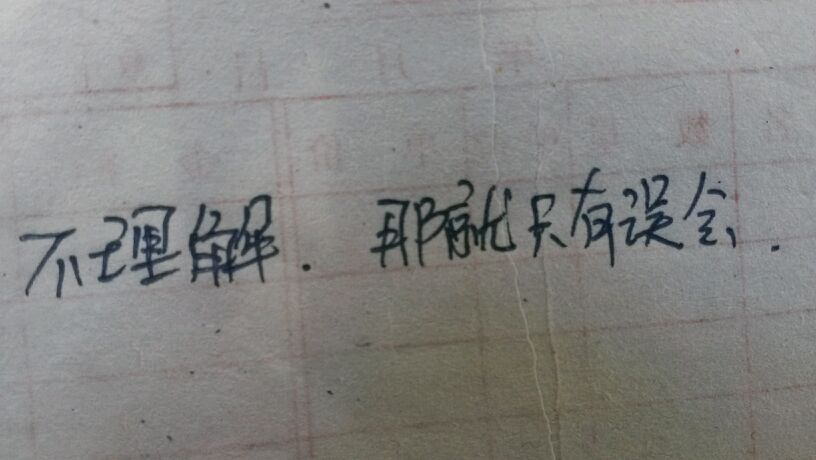 不理解. 那就只有误会.